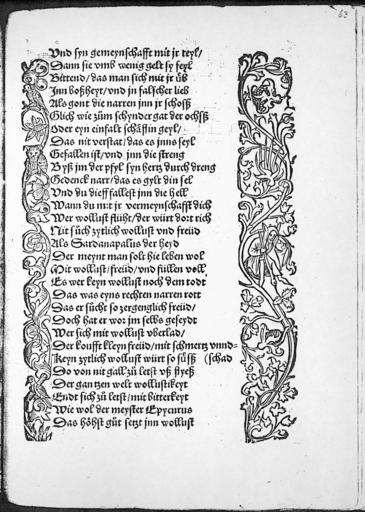 63
Vnd syn gemeynschafft mit jr teyl/
Dann sie vmb wenig gelt sy feyl
Bittend/das man sich mit jr üb
Jnn boßheyt/vnd jn falscher lieb
Als gont die narren jnn jr schosß
Glich wie zům schyndergat der ochsß
oder eyn einfalt schäfflin geyl/
Das nit verstat/das es jnns seyl
Gefallen ist/vnd jnn die streng
Byß jm der pfyl syn hertz durch dreng
Gedenck narr/das es gylt din sel
Vnd du dieff fallest jnn die hell
Wann du mit jr vermeynschafft dich
Wer wollust flüht/der würt dort rich
Nit sůch zytlich wollust vnd freüd
Als Sardanapalus der heyd
Der meynt man solt hie leben wol
Mit wollust/freüd/vnd füllen voll
Es wer keyn wollust noch dem todt
Das was eyns rechten narren rott
Das er sůcht so zergenglich freüd/
Doch hat er wor jm selbs geseydt
Wer sich mit wollust vberlad/
Der koufft kleyn freüd/mit schmertz vnnd=
Keyn zytlich wollust würt so sůß (schad
Do von nit gall zů letst vß flyeß
Der gantzen welt wollustikeyt
Endt sich zů letst/mit bitterkeyt
Wie wol der meyster Epycurus
Das höhst gůt setzt jnn wollust